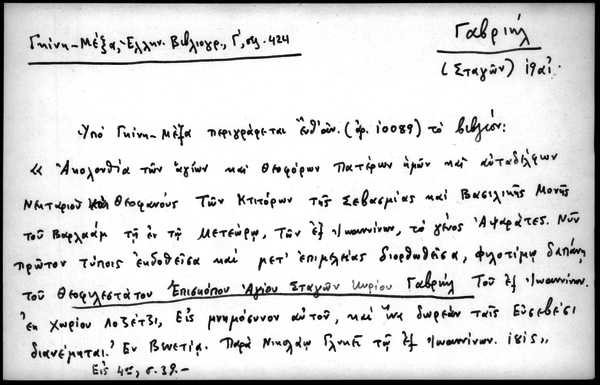 Γκίνη-Μέξα, Ἑλλην. Βιβλιογρ., Γ', σελ. 424
Γαβριήλ
(Σταγῶν)
Ὑπό Γκίνη-Μέξα περιγράφεται ἐνθ' ἀν. (ἀρ. 10089) τό βιβλίον:
« Ἀκολουθία τῶν ἁγίων καί θεοφόρων Πατέρων ἡμῶν καί αὐταδέλφων
Νεκταρίου καί Θεοφάνους τῶν Κτιτόρων τῆς Σεβασμίας καί Βασιλικῆς Μονῆς
τοῦ Βαρλαάμ τῇ ἐν τῷ Μετεώρῳ, τῶν ἐξ Ἰωαννίνων, τό γένος Ἀψαράτες. Νῦν
πρῶτον τύποις ἐκδοθεῖσα καί μετ' ἐπιμελείας διορθωθεῖσα, φιλοτίμῳ δαπάνῃ
τοῦ Θεοφιλεστάτου Ἐπισκόπου Ἁγίου Σταγῶν Κυρίου Γαβριήλ τοῦ ἐξ Ἰωαννίνων.
ἐκ χωρίου Λοζέτζι, Εἰς μνημόσυνον αὐτοῦ, καί ἵνα δωρεάν ταῖς Εὐσεβέσι
διανέμηται. Ἐν Βενετίᾳ. Παρά Νικολάῳ Γλυκεῖ τῷ ἐξ Ἰωαννίνων. 1815 »
Εἰς 4ον, σ. 39.-